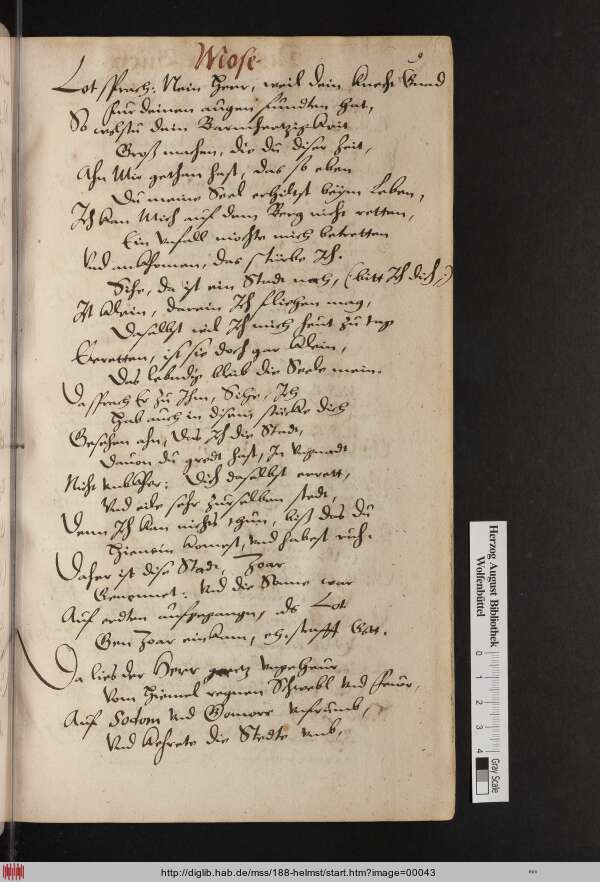 Mose.
Lot sprach: Nein Herr, weil dein knecht Gnad
für deinen augen funden hat,
So wolstu dein Barmhertzigkeit
Groß machen, die du diser Zeit,
Ahn Mir gethan hast, das so eben
Du meine Seel erhiltst beÿm Leben,
Ich kan Mich auf dem Berg nicht retten,
Ein Unfall möchte mich betretten
Und ankhomen, das stürbe Ich.
Sihe, da ist ein Stadt noch, (bitt Ich dich,)
Ist klein, darein Ich fliehen mag,
Daselbst wil Ich mich heut zu tag
Erretten, ist sie doch gar klein,
Das lebendig bleib die Seele mein.
Da sprach Er zu Ihm, Sihe, Ich
Hab auch in disem stücke dich
Gesehen ahn, Das Ich die Stadt,
Dauon du gredt hast,
Nicht umbkher: Dich daselbst errett,
Und eile sehr zurselben stedt,
Denn Ich kan nichts thun, bist das du
Hienein komest, und habest ruh.
Daher ist dise Stadt, Zoar
Genennet: Und die Sonne war
Auf erdten aufgegangen, als Lot
Gen Zoar einkam, eh. strafft Gott.
Da lies der Herr ungeheur
Vom Himel regnen Schwebl und feuer,
Auf Sodom und Gomorr
Und kehrete die Stedte umb,
Herzog August Bibliothek
Wolfenbüttel
0 1 2 3 4
Gray Scale
http://diglib.hab.de/mss/188-helmst/start.htm?image=00043